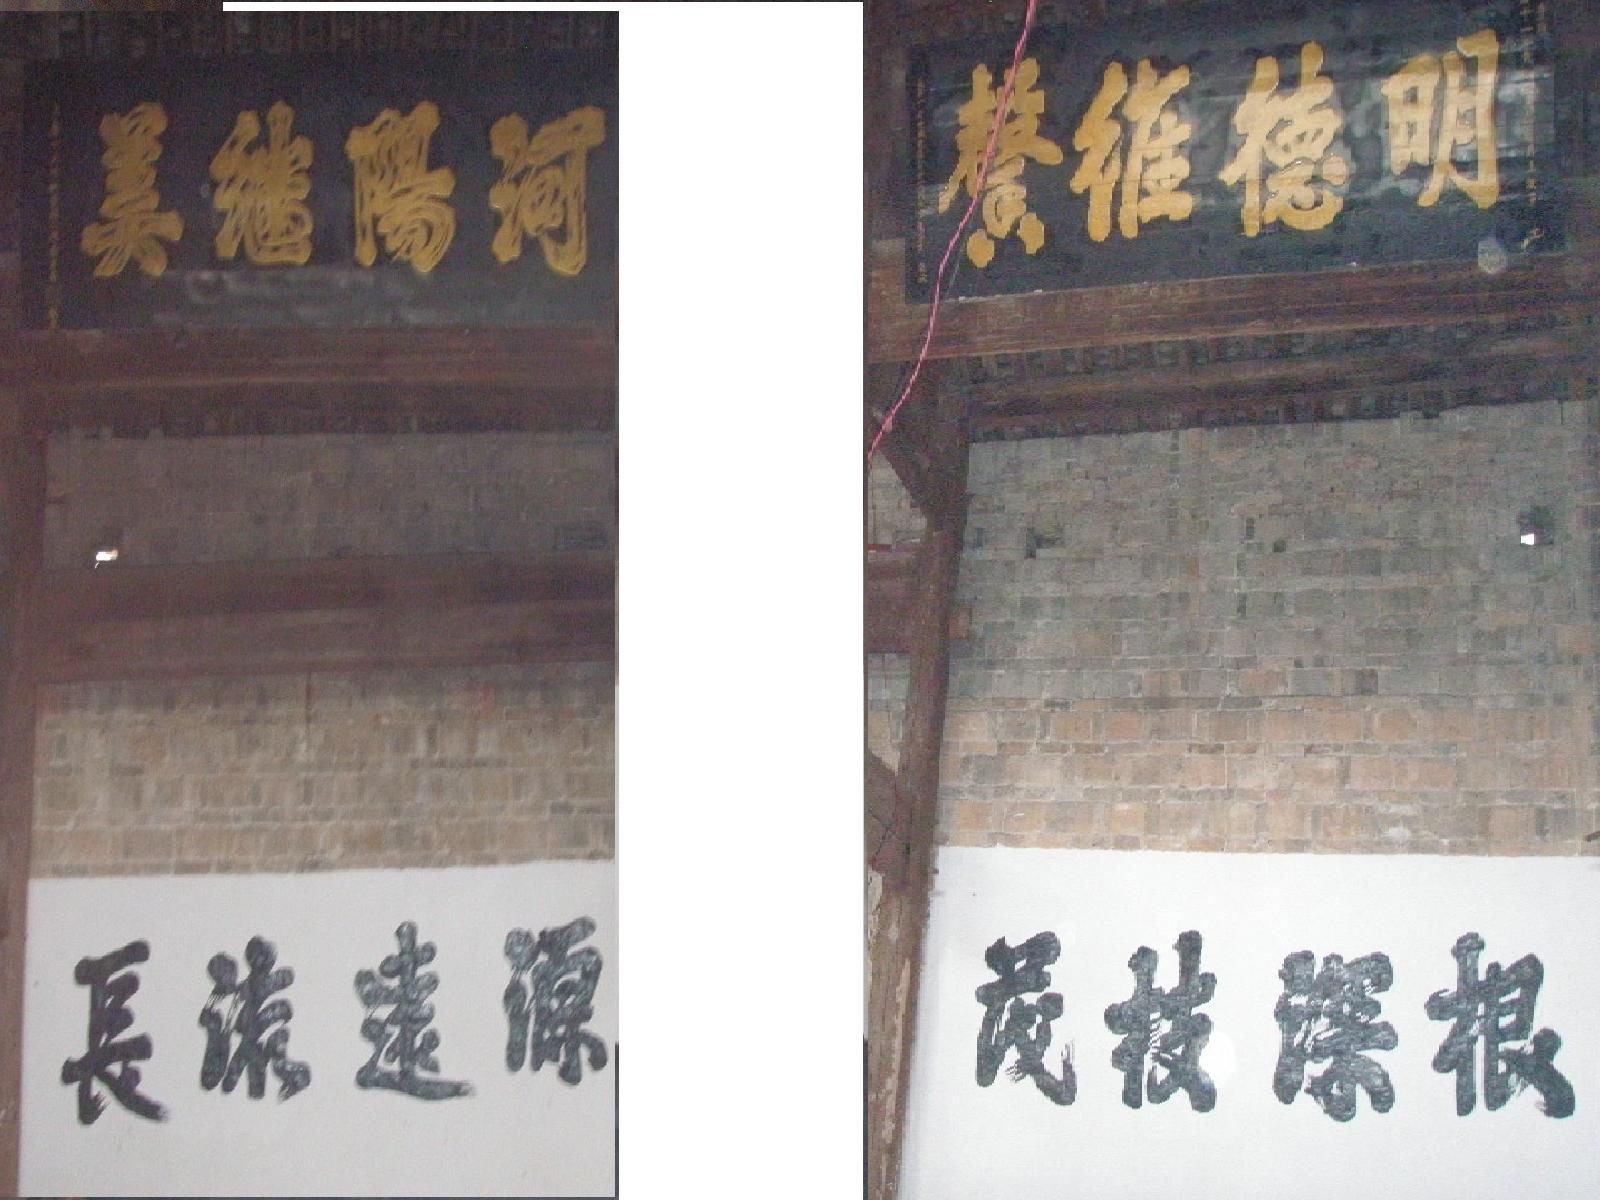 明德維馨
根深枝茂
河陽繼美
源遠流長